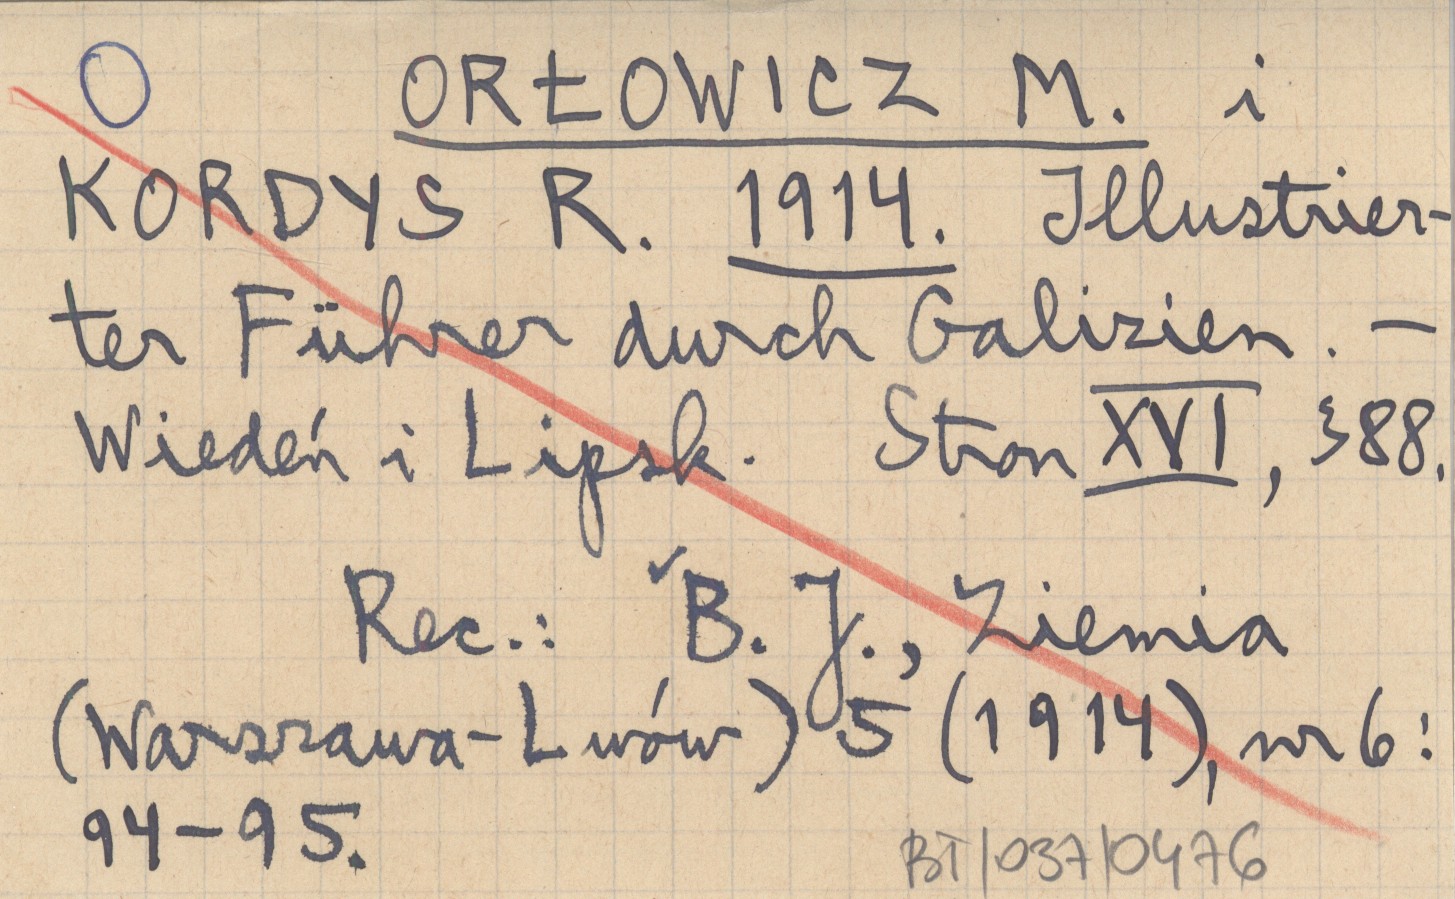 O ORŁOWICZ M. i
KORDYS R. 1914. Illustrier-
ter Führer durch Galizien. –
Wiedeń i Lipsk. Stron XVI, 388.
Rec.: B. J., Ziemia
(Warszawa-Lwów) 5 (1914), nr 6:
94-95.
BT/037/0476